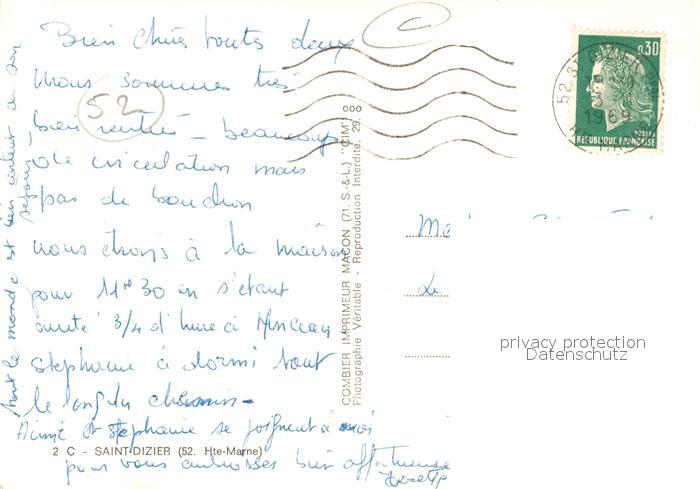 Bien chères toutes deux
nous sommes très
bien rentrés - beaucoup
de circulation mais
pas de bouchon
nous étions à la maison
pour 11H30 en s'étant
arrêté 3/4 d'heure à
Stephanie à dormi tout
le long du chemin -
Aimé et Stephanie se joignent à moi
pour vous embrasser bien affectueuse
tout le monde est bien content de son
séjour
52
C
2 C - SAINT-DIZIER (52. Hte-Marne)
COMBIER IMPRIMEUR MACON (71. S.-&-L.) "CIM"
Photographie Véritable - Reproduction Interdite. 29.
0,30
POSTES
REPUBLIQUE FRANÇAISE
52
1969
privacy protection
Datenschutz